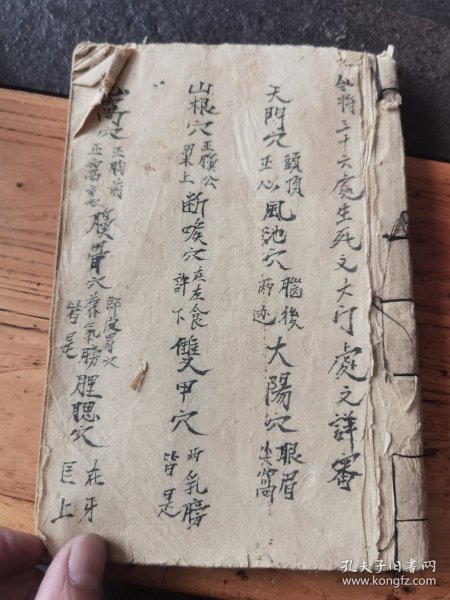 今将三十六處生死之大门處之詳審
天門穴 頭頂正心 風池穴 腦後兩边 大陽穴 眼眉尖窩
山根穴 鼻上 断喉穴 在左食許下 雙甲穴 所乳膀皆是
窩穴 正胸前正窩 腹 穴 即皮胃穴 養氣膀皆是 腮穴 在牙匡上
孔夫子旧书网
www.kongfz.com